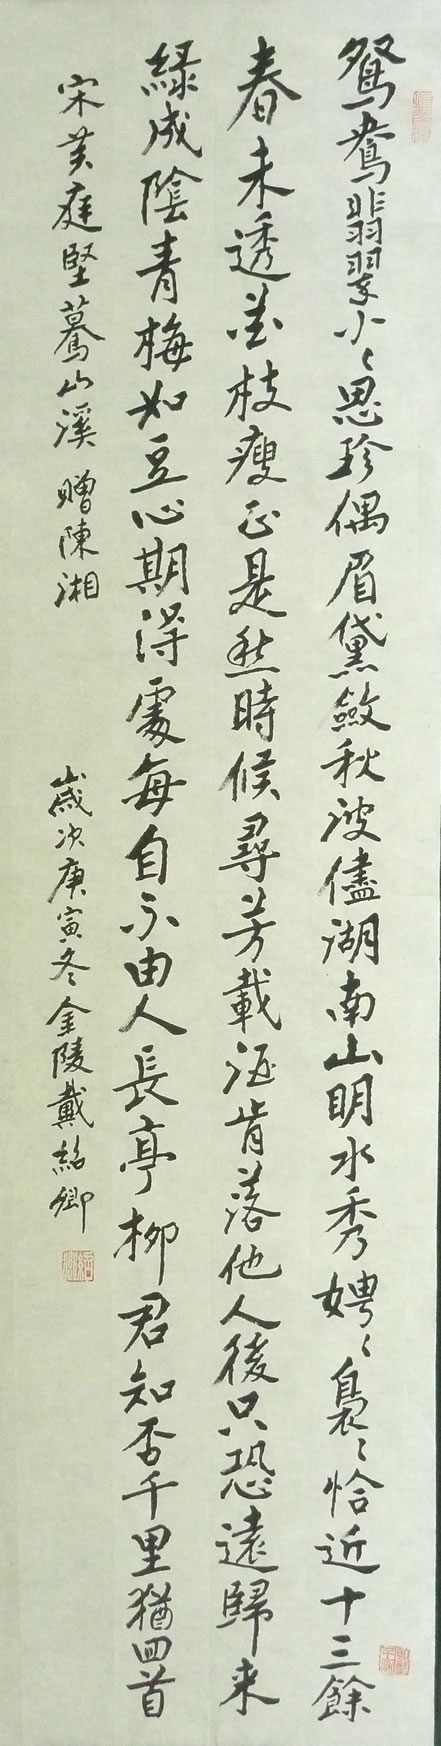 鴛鴦翡翠小々思珍偶眉黛斂秋波儘湖南山明水秀娉々裊々恰近十三餘
春未透花枝瘦正是愁時候尋芳載酒肯落他人後只恐遠歸来
綠成陰青梅如豆心期得處每自不由人長亭柳君知否千里猶回首
宋黃庭堅驀山溪 贈陳湘
歲次庚寅冬金陵戴紹卿